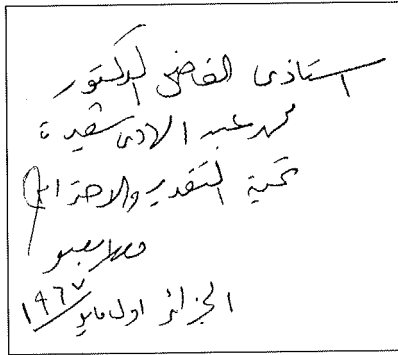 استاذى الفاضل الدكتور
محمد عبد الهادى شعيرة
تحية التقدير والاحترام
الجزائر اول مايو ١٩٦٧